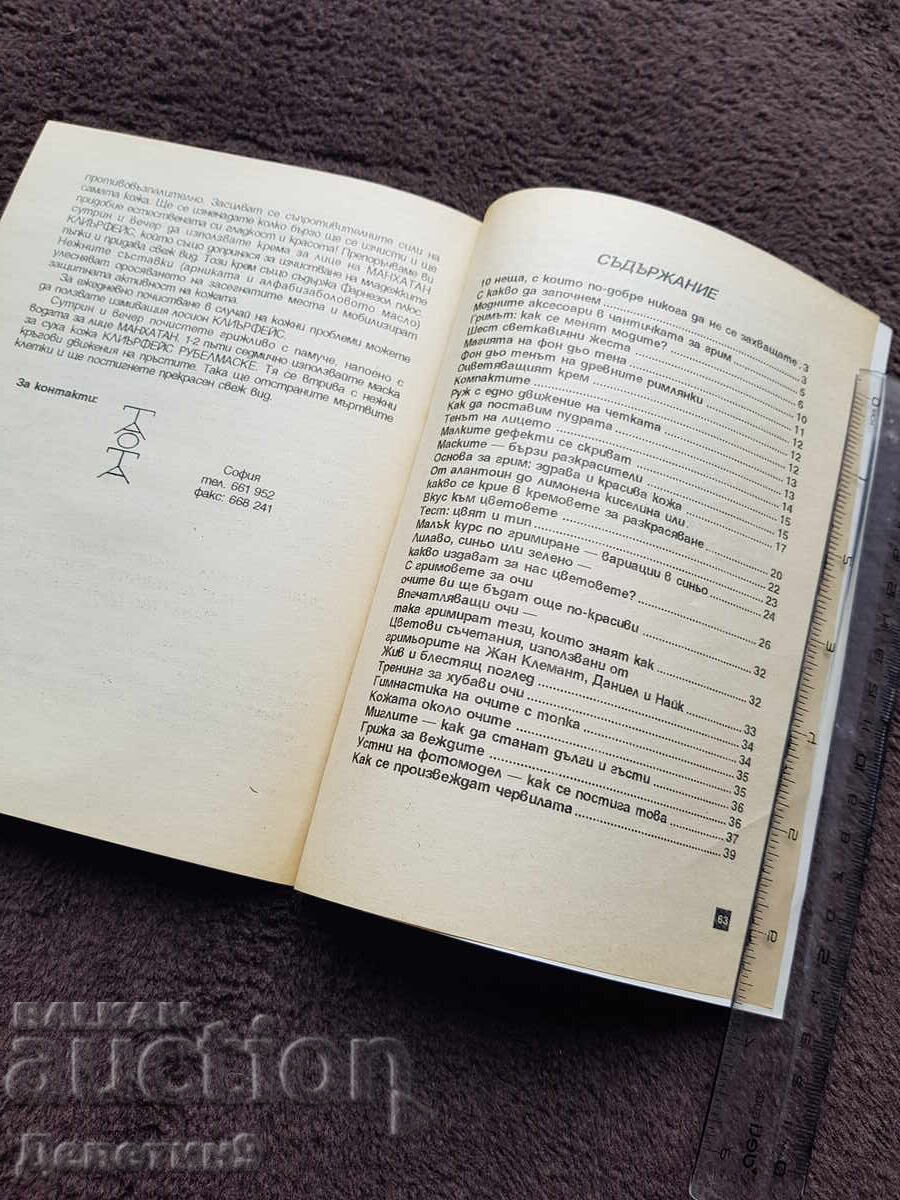 противовъзпалително. Засилват се съпротивителните сили на
самата кожа. Ще се изненадате колко бързо ще се изчисти и ще
придобие естествената си гладкост и красота! Препоръчваме Ви
сутрин и вечер да използвате крема за лице на МАНХАТАН
КЛИЪРФЕЙС, който също допринася за изчистване на младежките
пъпки и придава свеж вид. Този крем също съдържа Фарнезол плюс
Нежните съставки (арниката и алфабизаболовото масло)
улесняват оросяването на засегнатите места и мобилизират
защитната активност на кожата.
За ежедневно почистване в случай на кожни проблеми можете
да ползвате измиващия лосион КЛИЪРФЕЙС.
Сутрин и вечер почистете грижливо с памуче, напоено с
водата за лице МАНХАТАН. 1-2 пъти седмично използвайте маска
за суха кожа КЛИЪРФЕЙС РУБЕЛМАСКЕ. Тя се втрива с нежни
кръгови движения на пръстите. Така ще отстраните мъртвите
клетки и ще постигнете прекрасен свеж вид.
За контакти:
ТАОТА
София
тел. 661 952
факс: 668 241
СЪДЪРЖАНИЕ
10 неща, с които по-добре никога да не се захващате 3
С какво да започнем 3
Модните аксесоари в чантичката за грим 5
Гримът: как се менят модите? 6
Шест светкавични жеста 10
Магията на фон дьо тена 11
Фон дьо тенът на древните римлянки 12
Оцветяващият крем 12
Компактите 12
Руж с едно движение на четката 13
Как да поставим пудрата 13
Тенът на лицето 14
Малките дефекти се скриват 15
Маските — бързи разкрасители 15
Основа за грим: здрава и красива кожа 17
От алантоин до лимонена киселина или
какво се крие в кремовете за разкрасяване 20
Вкус към цветовете 22
Тест: цвят и тип 23
Малък курс по гримиране — вариации в синьо 24
Лилаво, синьо или зелено —
какво издават за нас цветовете? 26
С гримовете за очи
очите ви ще бъдат още по-красиви 32
Впечатляващи очи —
така гримират тези, които знаят как 32
Цветови съчетания, използвани от
гримьорите на Жан Клемант, Даниел и Найк 33
Жив и блестящ поглед 34
Тренинг за хубави очи 34
Гимнастика на очите с топка 35
Кожата около очите 35
Миглите — как да станат дълги и гъсти 36
Грижа за веждите 36
Устни на фотомодел — как се постига това 37
Как се произвеждат червилата 39
63
БАЛКАН
auction
Депетиня